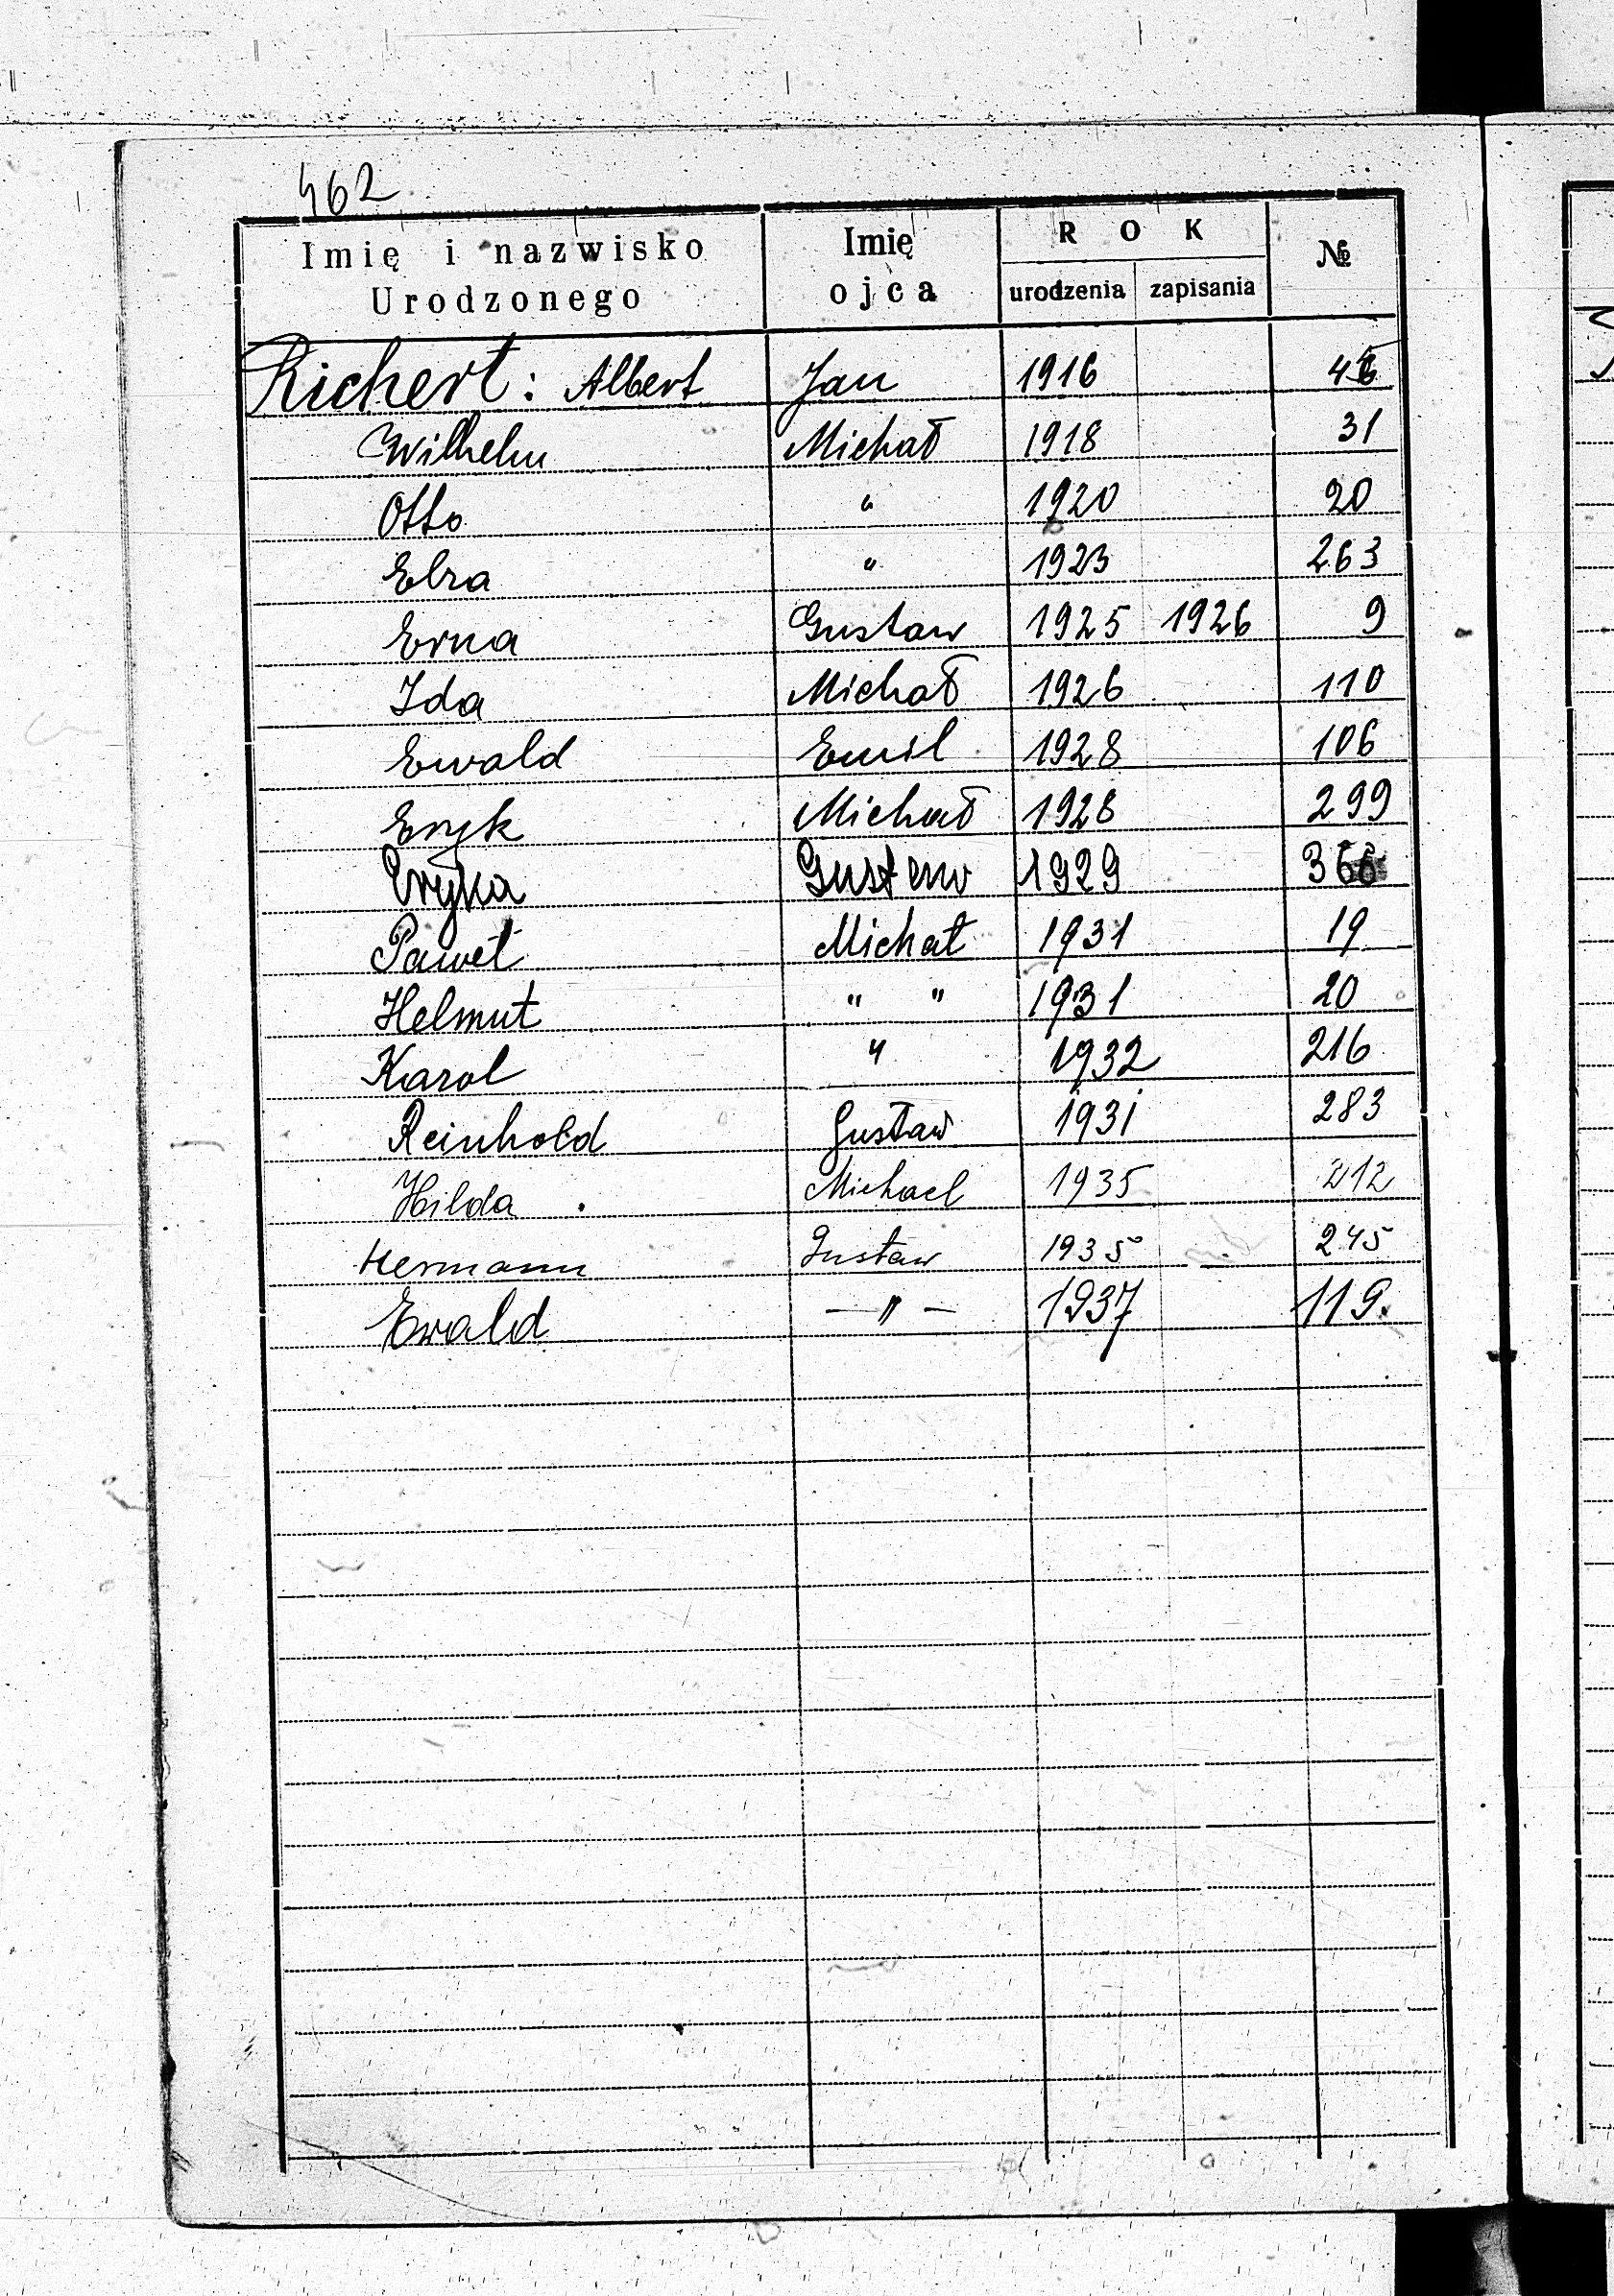 462
Imię i nazwisko Urodzonego | Imię ojca | ROK urodzenia | zapisania | №
Richert: Albert Jan 1916
Wilhelm Michał 1918 31
Otto " 1920 20
Elza " 1923 263
Erna Gustaw 1925 1926 9
Ida Michał 1926 110
Ewald Emil 1928 106
Eryk Michał 1928 299
Eryka Gustaw 1929
Paweł Michał 1931 19
Helmut " " 1931 20
Karol " 1932 216
Reinhold Gustaw 1931 283
Hilda Michael 1935 212
Hermann Gustaw 1935 245
Ewald — " — 1937 119.